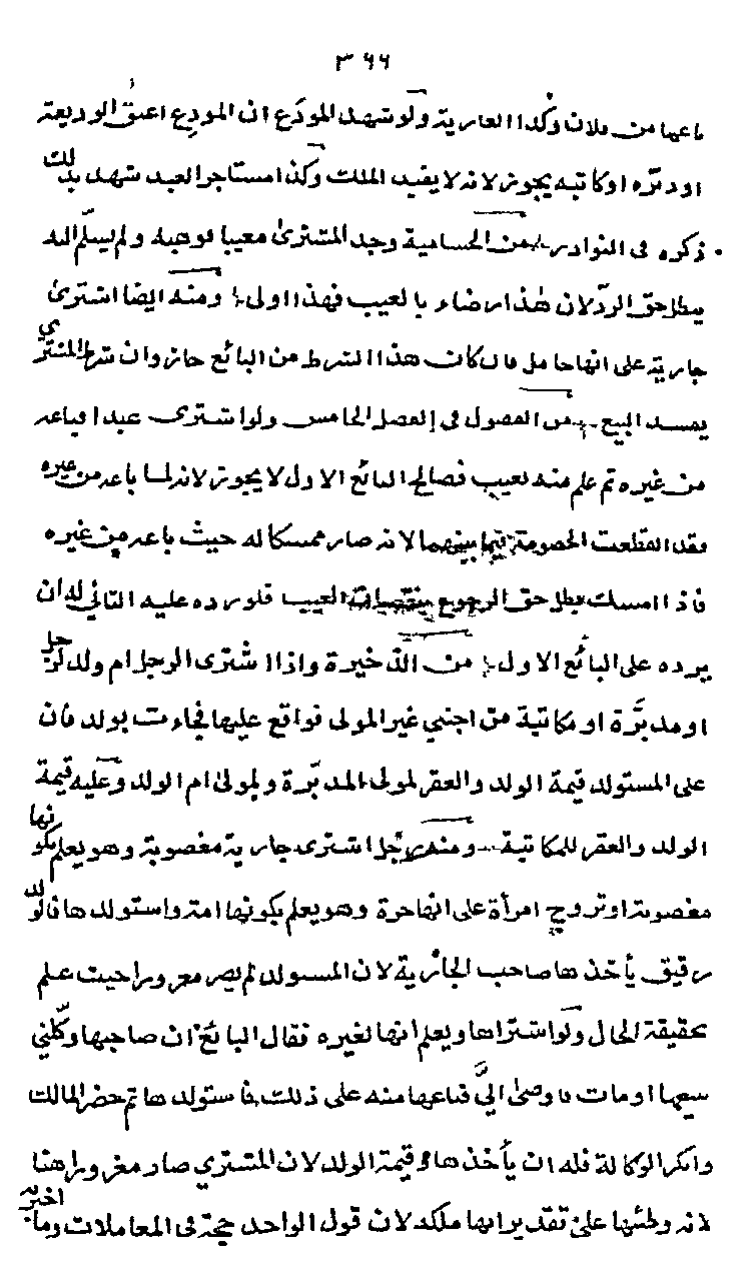 ٣٦٦
باعها من فلان وكذا العارية ولو شهد المودَع ان المودِع اعتق الوديعة
او دبّره او كاتبه يجوز لانه لا يفيد الملك وكذا مستاجر العبد شهد بذلك
ذكره فى النوادر من الحسامية وجد المشترى معيبا فوهبه ولم يسلّم اليه
يبطل حق الردّ لان هذا رضاء بالعيب فهذا اولى ومنه ايضا اشترى
جارية على انها حامل قال كان هذا الشرط من البائع جاز وان شرط المشتري
يفسد البيع من الفصول فى الفصل الخامس ولو اشترى عبدا فباعه
من غيره ثم علم منه بعيب فصالح البائع الاول لا يجوز لانه لما باعه من غيره
فقد انقطعت الخصومة فيما بينهما لانه صار ممسكا له حيث باعه من غيره
فاذا امسك بطل حق الرجوع بنقصان العيب فلو رده عليه الثاني له ان
يرده على البائع الاول من الذخيرة واذا اشترى الرجل ام ولد لرجل
او مدبّرة او مكاتبة من اجنبي غير المولى فواقع عليها فجاءت بولد فان
على المستولد قيمة الولد والعقر لمولى المدبّرة ولمولى ام الولد وعليه قيمة
الولد والعقر للمكاتبة ومنه رجل اشترى جارية مغصوبة وهو يعلم بكونها
مغصوبة او تزوج امرأة على انها حرة وهو يعلم بكونها امة واستولدها فالولد
رقيق يأخذها صاحب الجارية لان المستولد لم يصر مغرورا حيث علم
بحقيقة الحال ولو اشتراها ويعلم انها لغيره فقال البائع ان صاحبها وكّلني
ببيعها او مات واوصى اليّ فباعها منه على ذلك فاستولدها ثم حضر المالك
وانكر الوكالة فله ان يأخذها وقيمة الولد لان المشتري صار مغرورا هنا
لانه وطئها على تقدير انها ملكه لان قول الواحد حجة فى المعاملات وما اخبر به